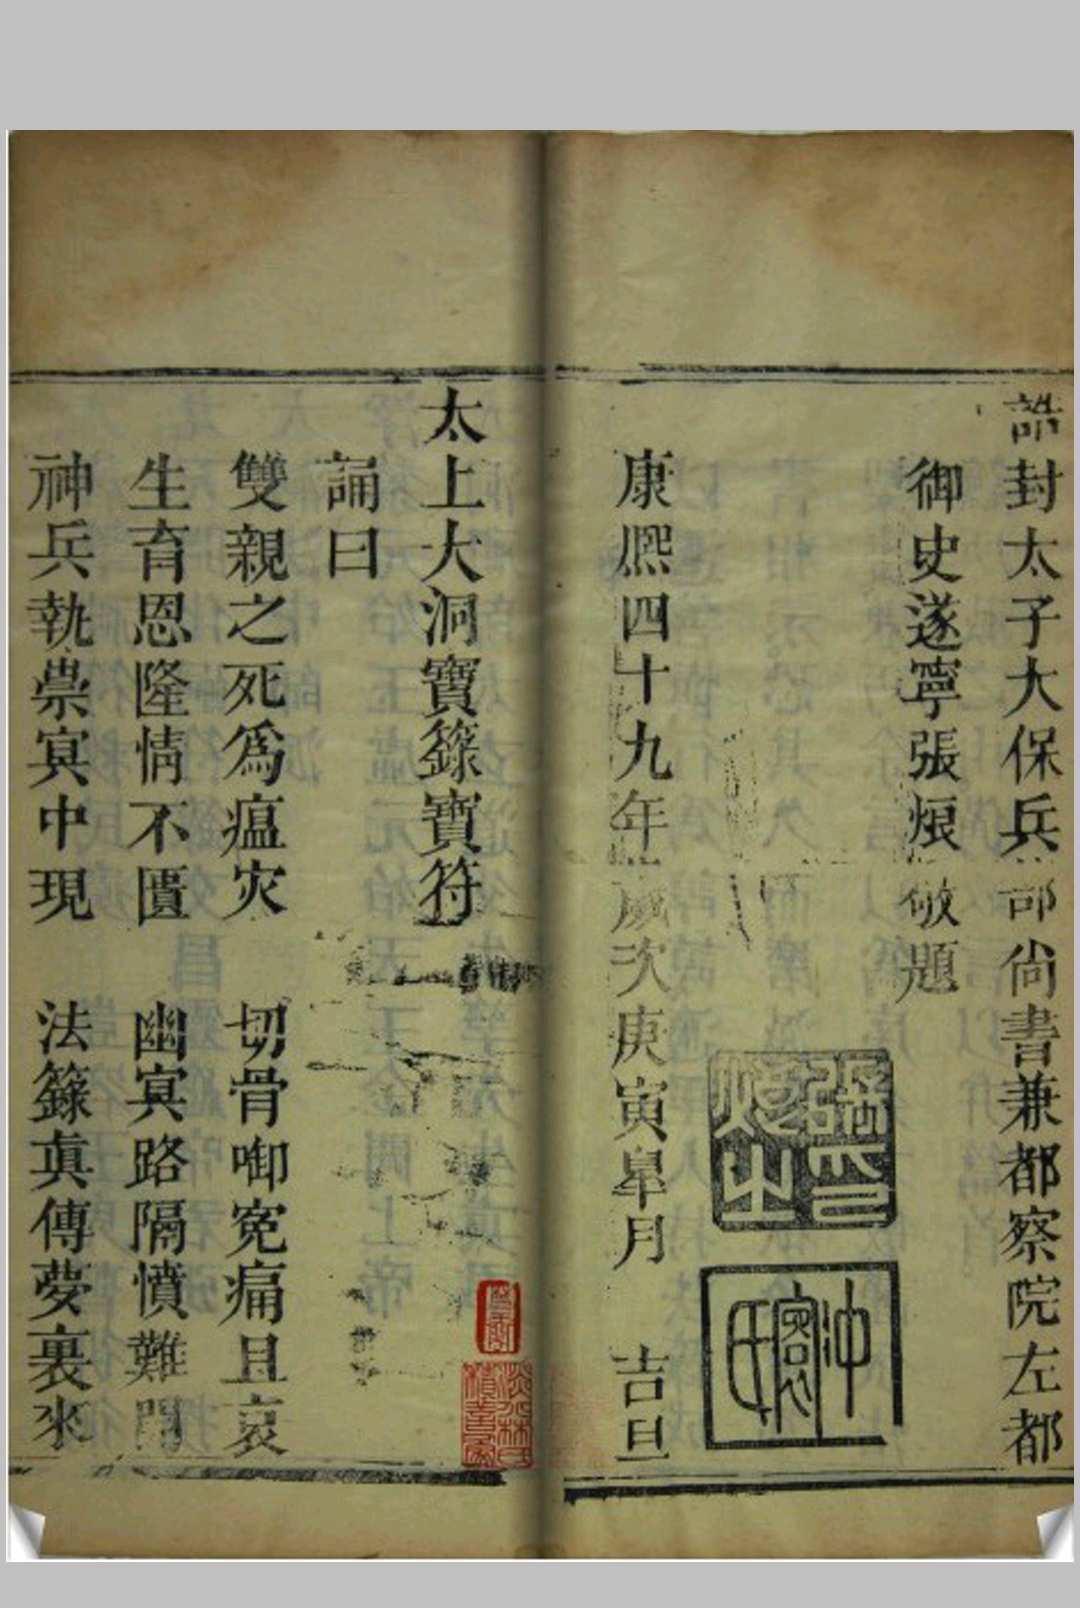 誥封太子大保兵部尚書兼都察院左都
御史遂寧張烺敬題
康熈四十九年歲次庚寅皐月 吉旦
太上大洞寶籙寶符
誦曰
雙親之死爲瘟灾 切骨啣寃痛且哀
生育恩隆情不匱 幽冥路隔憤難開
神兵執祟冥中現 法籙眞傳夢裏來